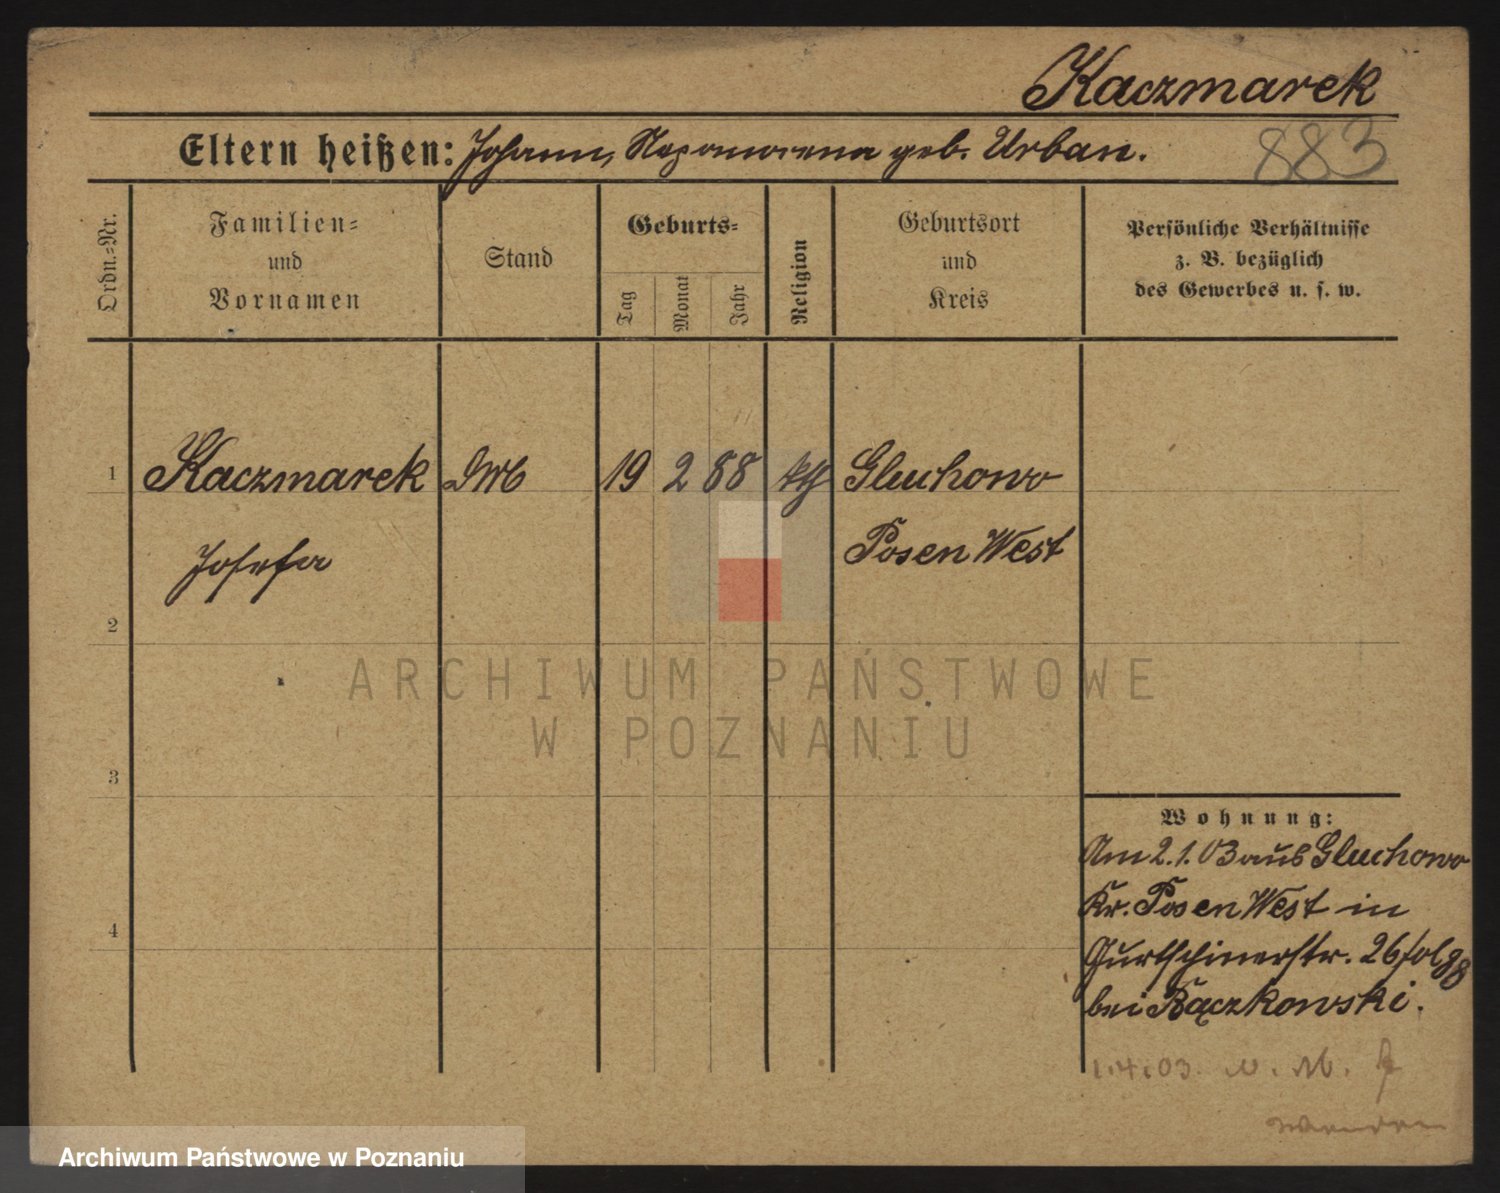 Kaczmarek
Eltern heißen: Johann, Nepomucena geb. Urban.
883
Ordn.-Nr.
Familien-
und
Vornamen
Stand
Geburts-
Tag
Monat
Jahr
Religion
Geburtsort
und
Kreis
Persönliche Verhältnisse
z. B. bezüglich
des Gewerbes u. s. w.
1 Kaczmarek 19 2 88 kth Gluchowo
Josefa Posen West
2
3
4
Wohnung:
Am 2.1.03 aus Gluchowo
Kr. Posen West in
Gurtschinerstr. 26
bei Rączkowski.
1.4.03.
Wenden
ARCHIWUM PAŃSTWOWE
W POZNANIU
Archiwum Państwowe w Poznaniu